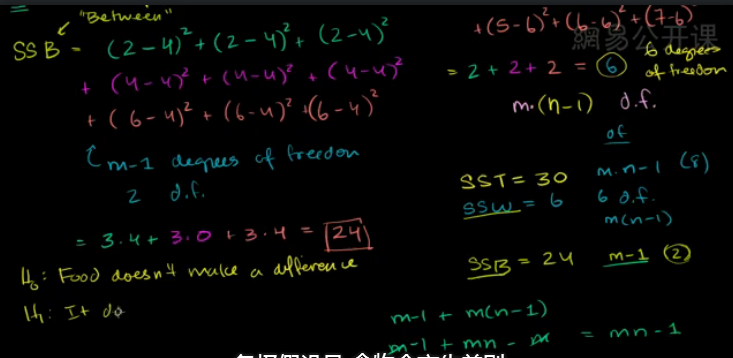 "Between"
SSB = (2-4)² + (2-4)² + (2-4)²
+ (4-4)² + (4-4)² + (4-4)²
+ (6-4)² + (6-4)² + (6-4)²
m-1 degrees of freedom
2 d.f.
= 3·4 + 3·0 + 3·4 = 24
H₀: Food doesn't make a difference
H₁: It do
+(5-6)² + (6-6)² + (7-6)²
網易公开课
= 2 + 2 + 2 = 6
6 degrees
of freedom
m·(n-1) d.f.
of
SST = 30 m·n-1 (8)
SSW = 6 6 d.f.
m(n-1)
SSB = 24 m-1 2
m-1 + m(n-1)
m-1 + mn - m = mn-1